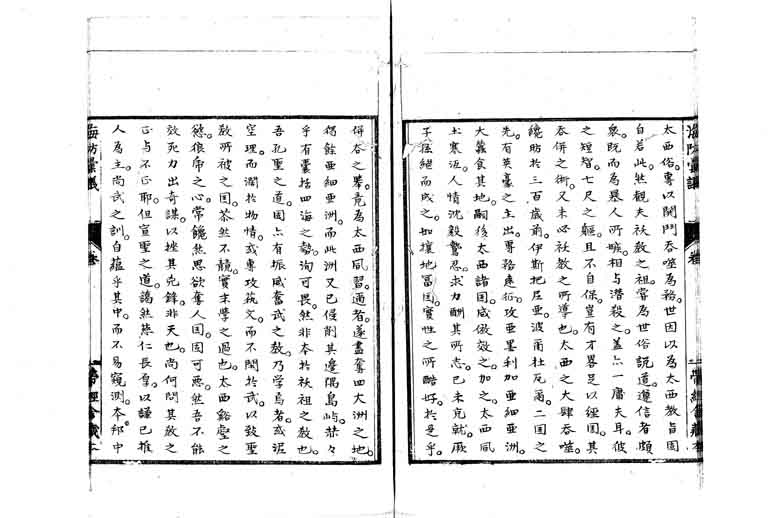 太西俗專以鬪鬥吞噬為務世因以為太西教旨固
自若此然觀夫祆教之祖嘗為世俗説道遵信者頗
衆既而為羣人所嫉相与潛殺之蓋亦一庸夫耳彼
之短智七尺之軀且不自保豈有才畧足以經国其
吞併之術又未必祆教之所導也太西之大肆吞噬
纔昉於三百歲前伊斯把尼亞波爾杜瓦爾二国之
先有英豪之主出專務遠征攻亜墨利加亜細亜洲
大蠶食其地嗣後太西諸国咸倣效之加之太西風
土寒沍人情沈毅驚忍求力酬其所志己未克就厥
子孫紹而成之如攘地冨国實性之所酷好於是乎
併吞之擧竟為太西風習適者遂盡奪四大洲之地
獨餘亜細亜洲而此洲又已侵削其邊隅島嶼恭々
乎有囊括四海之勢洵可畏然非本於祆祖之敎也
吾孔聖之道固亦有振威奮武之教乃学焉者或泥
空理而濶於物情或專攻萟文而不閑於武以致聖
敎所被之国苶然不競實末学之過也太西谿壑之
慾狼帝之心常饞然思欲奪人国固可悪然吾不能
效死力出奇謀以挫其先鋒非天也尚何問其敎之
正与不正耶但宣聖之道藹然崇仁長厚以謙已推
人為主尚武之訓自蘊乎其中而不易窺測本邦中
海防彙議
卷